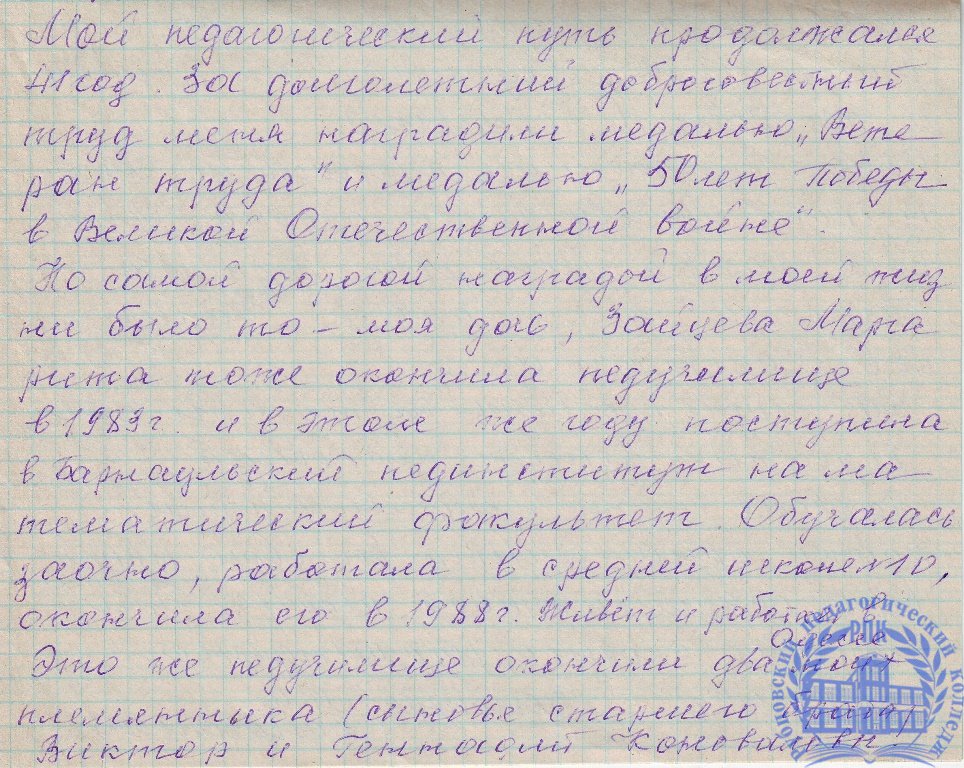 Мой педагогический путь продолжался
41 год. За долголетний добросовестный
труд меня наградили медалью „Вете-
ран труда" и медалью „50 лет Победы
в Великой Отечественной войне".
Но самой дорогой наградой в моей жиз
ни было то – моя дочь, Зайцева Марга
рита тоже окончила педучилище
в 1983г. и в этом же году поступила
в Барнаульский пединститут на ма-
тематический факультет. Обучалась
заочно, работала в средней школе №10,
окончила его в 1988г. Живёт и работает в
Одессе
Это же педучилище окончили два моих
племянника (сыновья старшего брата)
Виктор и Геннадий Коноваловы.
педагогический колледж
РПК